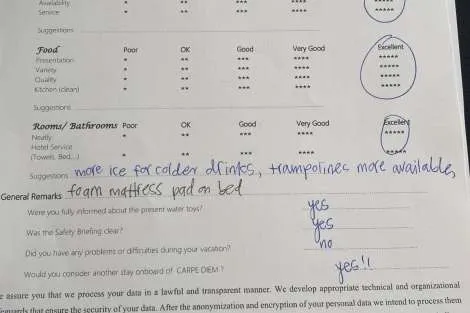 Availability * ** *** **** *****
Service * ** *** **** *****
Suggestions
Food Poor OK Good Very Good Excellent
Presentation * ** *** **** *****
Variety * ** *** **** *****
Quality * ** *** **** *****
Kitchen (clean) * ** *** **** *****
Suggestions
Rooms/ Bathrooms Poor OK Good Very Good Excellent
Neatly * ** *** **** *****
Hotel Service
(Towels, Bed,..) * ** *** **** *****
Suggestions more ice for colder drinks, trampolines more available,
General Remarks foam mattress pad on bed
Were you fully informed about the present water toys? yes
Was the Safety Briefing clear? yes
Did you have any problems or difficulties during your vacation? no
Would you consider another stay onboard of CARPE DIEM ? yes!!
e assure you that we process your data in a lawful and transparent manner. We develop appropriate technical and organizational
that ensure the security of your data. After the anonymization and encryption of your personal data we intend to process them